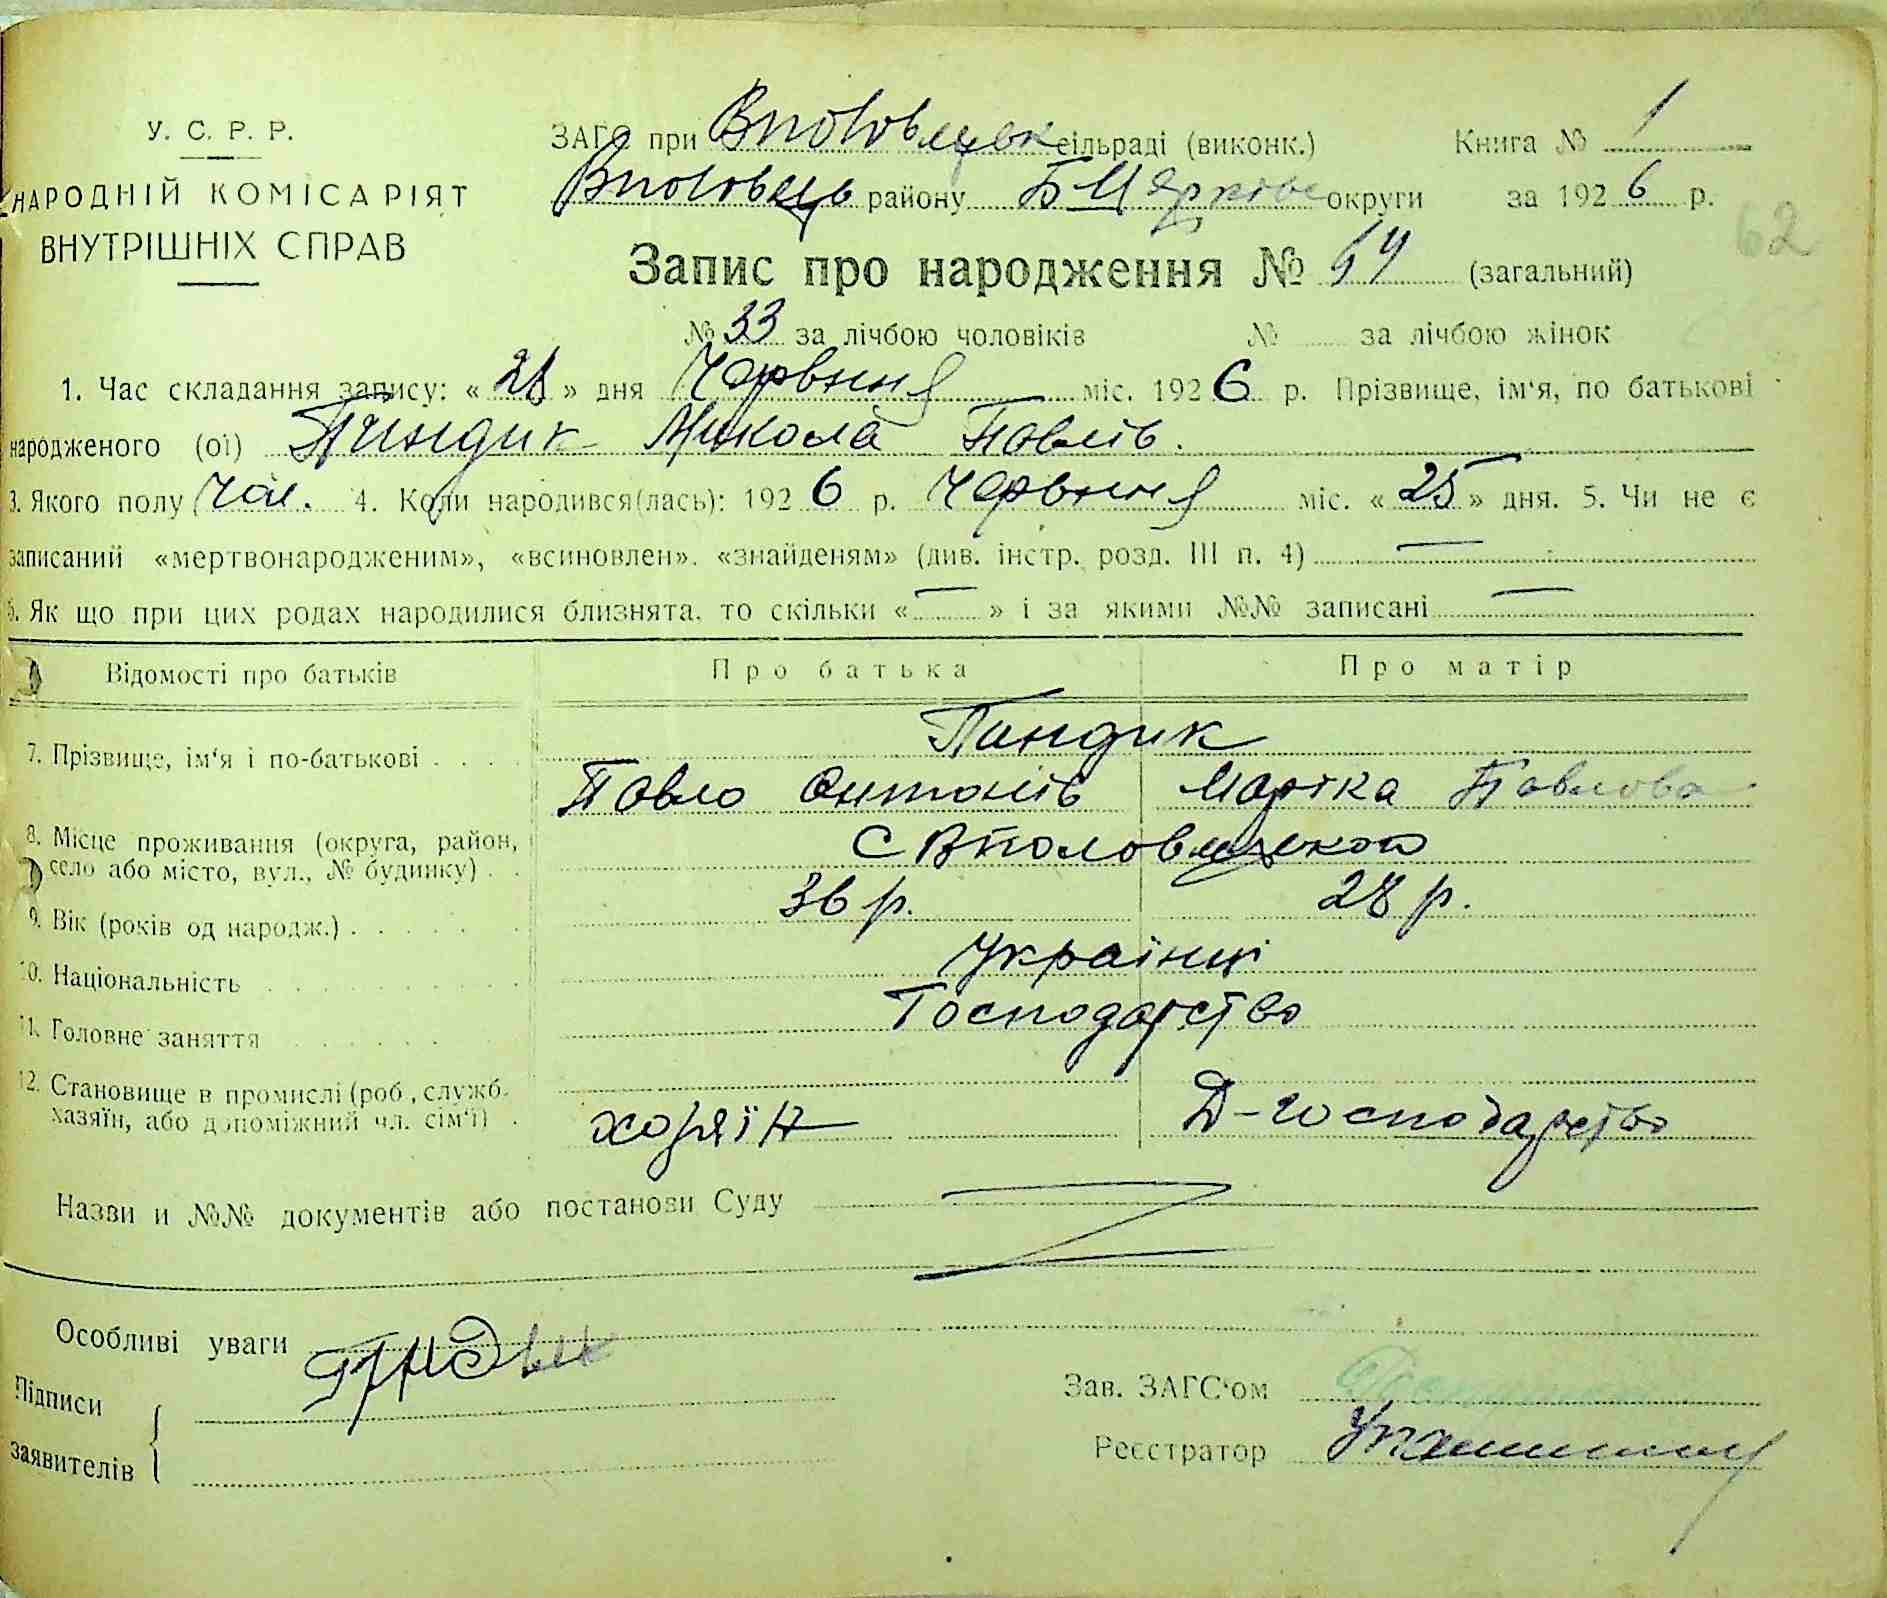 У. С. Р. Р.
НАРОДНІЙ КОМІСАРІЯТ
ВНУТРІШНІХ СПРАВ
ЗАГС при Вполовецьк сільраді (виконк.) Книга № 1
Вполовець району Б Церківс округи за 1926 р.
62
Запис про народження № 64 (загальний)
№ 33 за лічбою чоловіків № за лічбою жінок
1. Час складання запису: « 28 » дня Червння міс. 1926 р. Прізвище, ім'я, по батькові
народженого (ої) Пиндик Микола Павлів.
3. Якого полу Чол. 4. Коли народився(лась): 1926 р. Червння міс. « 25 » дня. 5. Чи не є
записаний «мертвонародженим», «всиновлен». «знайденям» (див. інстр. розд. III п. 4) —
6. Як що при цих родах народилися близнята, то скільки « — » і за якими №№ записані —
Відомості про батьків Про батька Про матір
7. Прізвище, ім'я і по-батькові Пандик
Павло Антонів Маріка Павлова
8. Місце проживання (округа, район, село або місто, вул., № будинку) С Вполовецькой
9. Вік (років од народж.) 36 р. 28 р.
10. Національність Українці
11. Головне заняття Господарство
12. Становище в промислі (роб., служб. хазяїн, або допоміжний чл. сім'ї) хозяїн Д-господарство
Назви и №№ документів або постанови Суду
Особливі уваги
Підписи
заявителів
Зав. ЗАГС'ом
Реєстратор